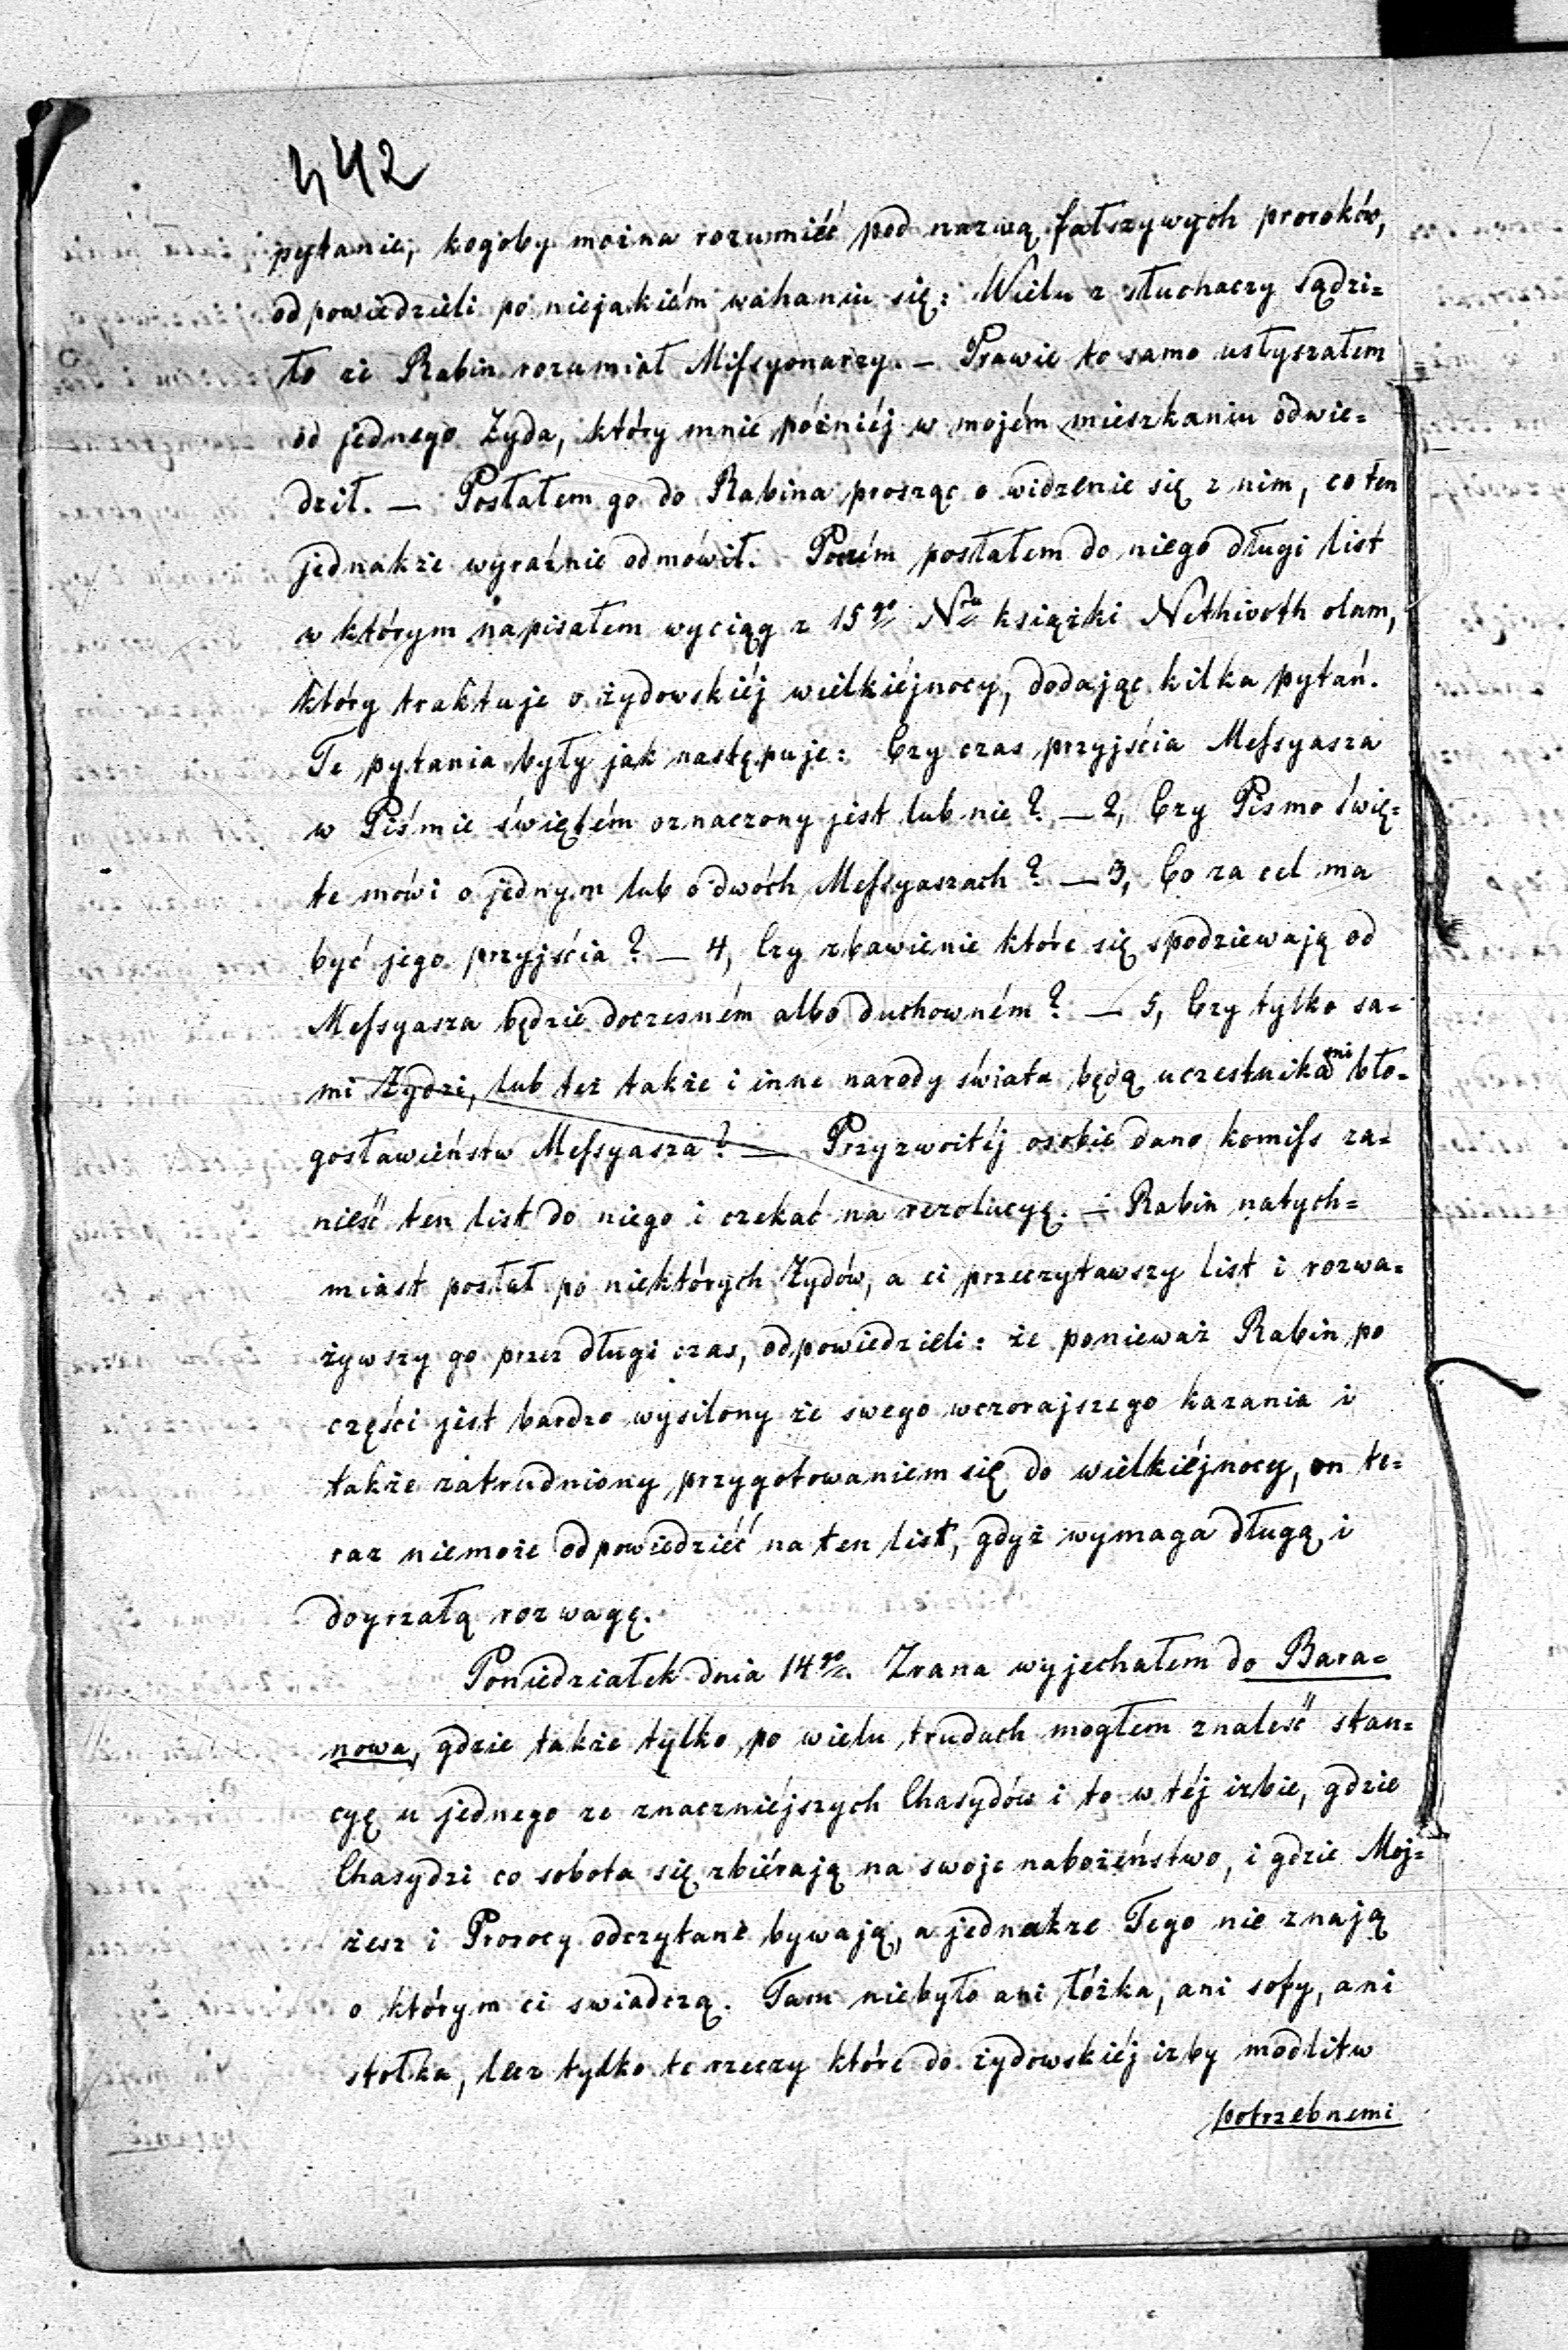 442
pytanie, kogoby można rozumiéć pod nazwą fałszywych proroków,
odpowiedzieli po niejakiém wahaniu się: Wielu z słuchaczy sądzi=
ło że Rabin rozumiał Missyonarzy. — Prawie to samo usłyszałem
od jednego Żyda, który mnie późniéj w mojém mieszkaniu odwie=
dził. — Posłałem go do Rabina prosząc o widzenie się z nim, co ten
jednakże wyraźnie odmówił. Poczém posłałem do niego długi list
w którym napisałem wyciąg z 15go Nru książki Nethivoth olam,
który traktuje o żydowskiéj wielkiéjnocy, dodając kilka pytań.
Te pytania były jak następuje: Czy czas przyjścia Messyasza
w Piśmie świętém oznaczony jest lub nie? — 2, Czy Pismo świę=
te mówi o jednym lub o dwóch Messyaszach? — 3, Co za cel ma
być jego przyjścia? — 4, Czy zbawienie które się spodziewają od
Messyasza będzie doczesném albo duchowném? — 5, Czy tylko sa=
mi Żydzi, lub też także i inne narody świata będą uczestnikami bło=
gosławieństw Messyasza? — Przyzwoitéj osobie dano komiss za=
nieść ten list do niego i czekać na rezolucyę. — Rabin natych=
miast posłał po niektórych Żydów, a ci przeczytawszy list i rozwa=
żywszy go przez długi czas, odpowiedzieli: że ponieważ Rabin po
części jest bardzo wysilony ze swego wczorajszego kazania i
także zatrudniony przygotowaniem się do wielkiéjnocy, on te=
raz niemoże odpowiedziéć na ten list, gdyż wymaga długą i
doyrzałą rozwagę.
Poniedziałek dnia 14go. Zrana wyjechałem do Bara=
nowa, gdzie także tylko po wielu trudach mogłem znaleść stan=
cyę u jednego ze znaczniéjszych Chasydów i to w téj izbie, gdzie
Chasydzi co sobota się zbiérają na swoje nabożeństwo, i gdzie Moj=
żesz i Prorocy odczytane bywają, a jednakże Tego nie znają
o którym ci swiadczą. Tam niebyło ani łóżka, ani sofy, ani
stołka, lecz tylko te rzeczy które do żydowskiéj izby modlitw
potrzebnemi